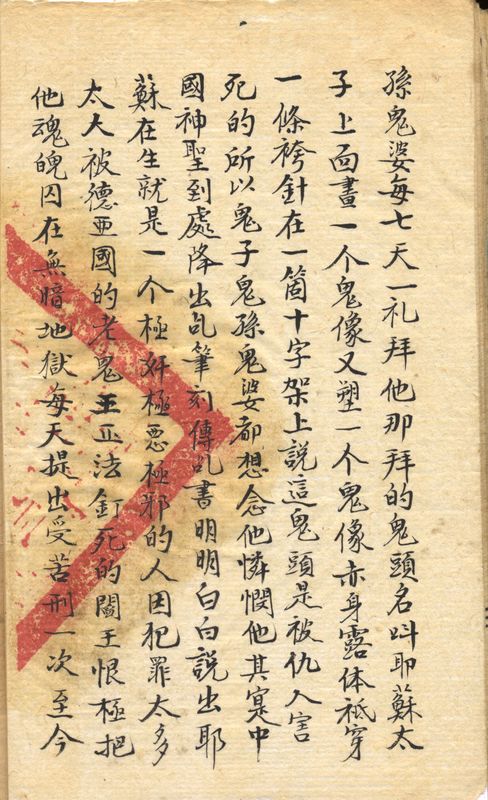 孫鬼婆每七天一礼拜他那拜的鬼頭名呌耶蘇太
子上面畫一个鬼像又塑一个鬼像赤身露体祗穿
一條袴針在一箇十字架上說這鬼頭是被仇人害
死的所以鬼子鬼孫鬼婆都想念他憐憫他其寔中
國神聖到處降出乩筆刻傳乩書明明白白說出耶
蘇在生就是一个極奸極惡極邪的人因犯罪太多
太大被德亜國的老鬼王正法釘死的閻王恨極把
他魂魄囚在無暗地獄每天提出受苦刑一次至今